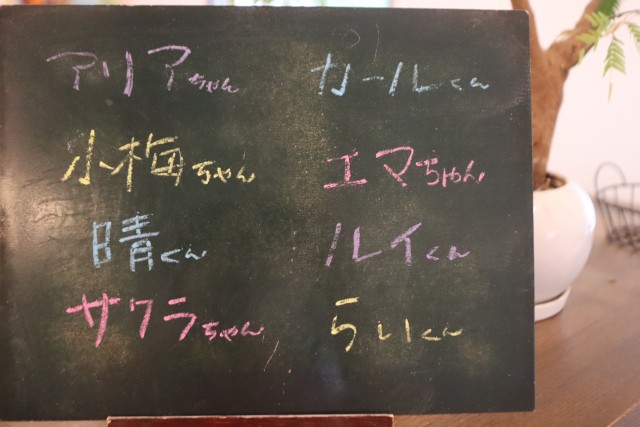 アリアちゃん
カールくん
小梅ちゃん
エマちゃん
晴くん
ルイくん
サクラちゃん
らいくん